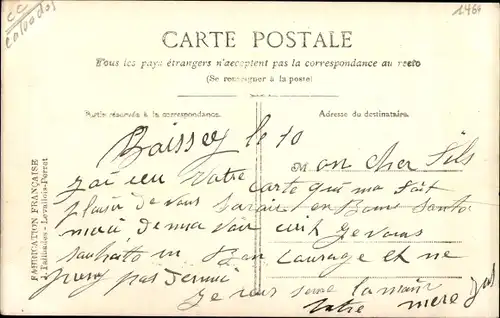 CC
Calvados
1464
CARTE POSTALE
Tous les pays étrangers n'acceptent pas la correspondance au recto
(Se renseigner à la poste)
Partie réservée à la correspondance.
Adresse du destinataire.
FABRICATION FRANÇAISE
Levallois-Perret
Boissey le 10
Mon cher fils
j'ai reu votre carte qui ma fait
plaisir de vous savoir en Bone Santé
merci de ma voir écrit je vous
souhaite un Bon Courage et ne
pas
je vous sere la main
votre mere